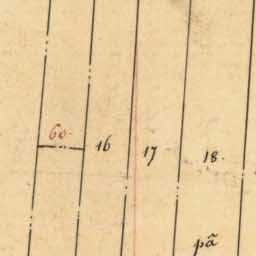 60.
16
17
18.
pã